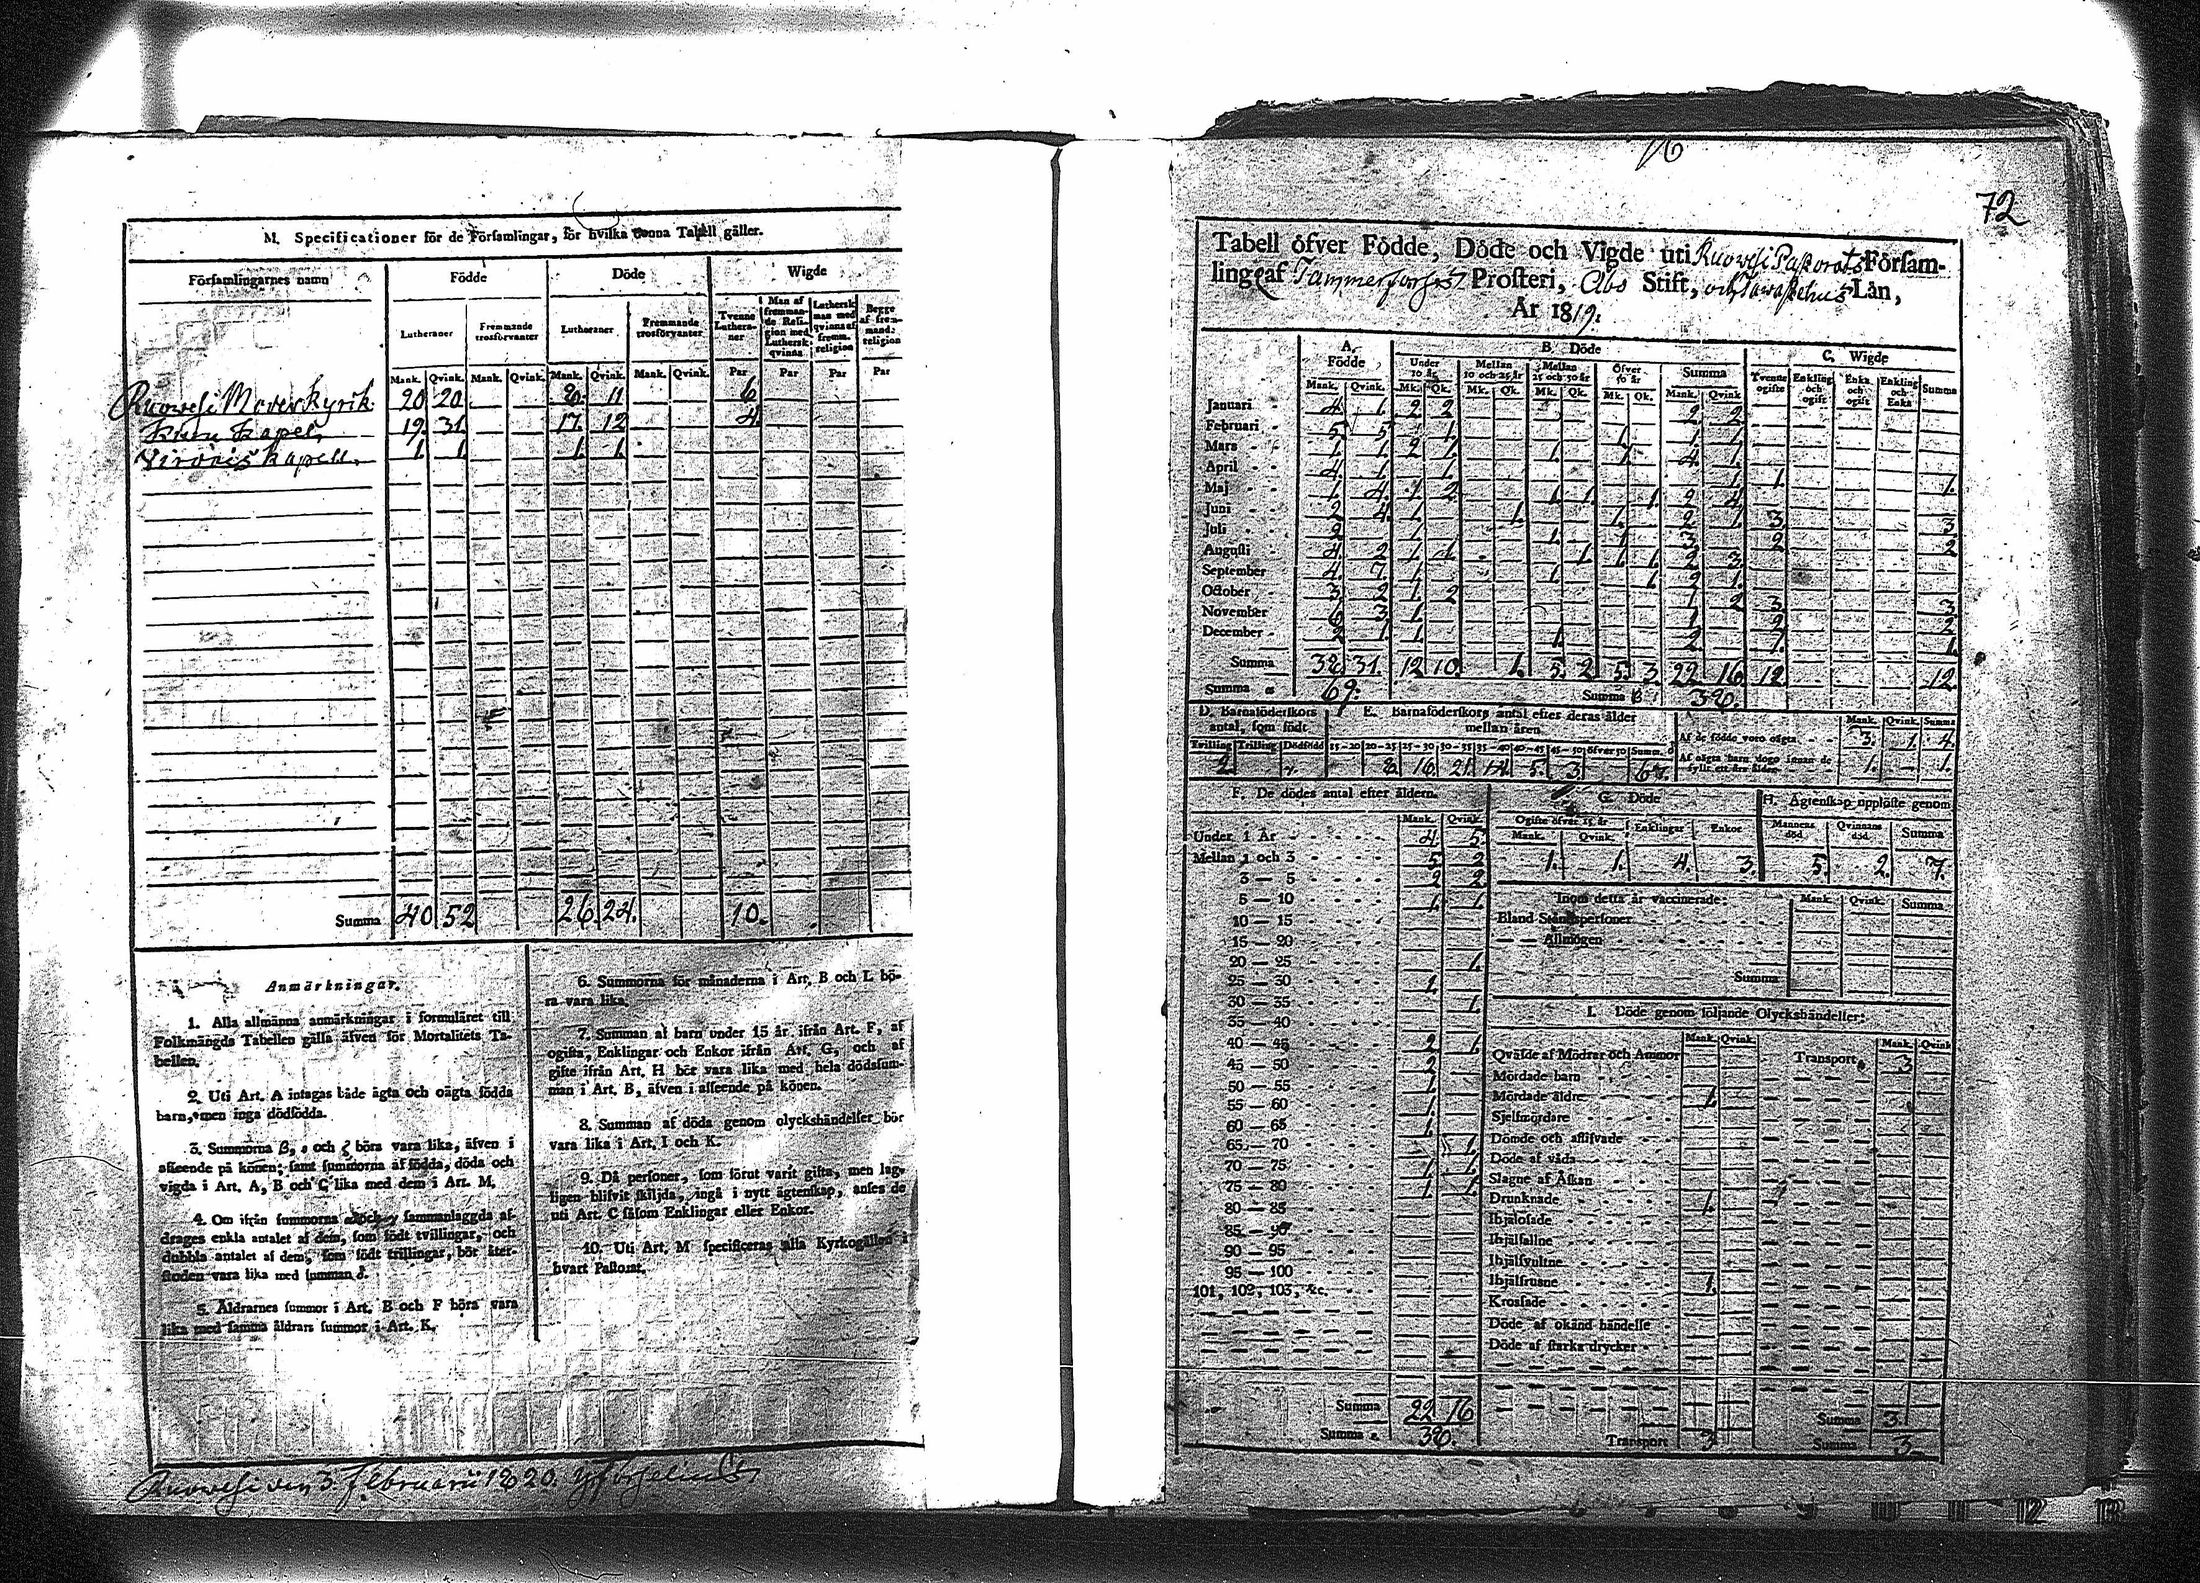 M. Specificationer för de Församlingar, för hvilka denna Tabell gäller.
Församlingarnes namn
Födde
Döde
Wigde
Lutheraner
Fremmande trosförvanter
Lutheraner
Fremmande trosförvanter
Tvenne Lutheraner
Man af fremmande Religion med Luthersk qvinna
Luthersk man med qvinna af fremm. religion
Begge af fremmande religion
Mank. Qvink. Mank. Qvink. Mank. Qvink. Mank. Qvink. Par Par Par Par
Ruowesi Moderkyrik. 20 20 8. 11 6
Kuru Kapel, 19. 31. 17. 12 4.
Virdois Kapell. 1. 1. 1. 1.
Summa 40 52 26. 24. 10.
Anmärkningar.
1. Alla allmänna anmärkningar i formuläret till
Folkmängds Tabellen gälla äfven för Mortalitets Ta-
bellen.
2. Uti Art. A intagas både ägta och oägta födda
barn, men inga dödfödda.
3. Summorna β, ε och ζ böra vara lika, äfven i
afseende på könen; samt summorna af födda, döda och
vigda i Art. A, B och C lika med dem i Art. M.
4. Om ifrån summorna α och γ sammanlaggda af-
drages enkla antalet af dem, som födt tvillingar, och
dubbla antalet af dem, som födt trillingar, bör åter-
stoden vara lika med summan δ.
5. Åldrarnes summor i Art. B och F böra vara
lika med samma åldrars summor i Art. K.
6. Summorna för månaderna i Art. B och L bö-
ra vara lika.
7. Summan af barn under 15 år ifrån Art. F, af
ogifta, Enklingar och Enkor ifrån Art. G, och af
gifte ifrån Art. H bör vara lika med hela dödssum-
man i Art. B, äfven i afseende på könen.
8. Summan af döda genom olyckshändelser bör
vara lika i Art. I och K.
9. Då personer, som förut varit gifta, men lag-
ligen blifvit skiljda, ingå i nytt ägtenskap, anses de
uti Art. C såsom Enklingar eller Enkor.
10. Uti Art. M specificeras alla Kyrkogällen i
hvart Pastorat.
Ruowesi den 3. Februarii 1820.
76
72
Tabell öfver Födde, Döde och Vigde uti Ruowesi Pastorats Försam-
ling af Tammerfors Prosteri, Åbo Stift, och Tawastehus Län,
År 1819.
A. Födde
B. Döde
C. Wigde
Under 10 år
Mellan 10 och 25 år
Mellan 25 och 50 år
Öfver 50 år
Summa
Tvenne ogifte
Enkling och ogift
Enka och ogift
Enkling och Enka
Summa
Mank. Qvink. Mk. Qk. Mk. Qk. Mk. Qk. Mk. Qk. Mank. Qvink
Januari 4. 1. 2 2 2 2
Februari 5. 5. 1. 1. 1. 1.
Mars 1. 1. 2 1. 1. 1. 4. 1.
April 4. 1. 1. 1. 1. 1.
Maj 1. 4. 1 2 1. 1. 1. 2 4
Juni 2 4. 1. 1. 1. 2. 1. 3 3
Juli 2 1. 1. 1. 1. 3 2 2
Augusti 4. 2 1. 1. 1. 1. 1. 2 3
September 4. 7. 1. 1. 1. 2 1.
October 3 2 1. 2 1. 2 3 3
November 6 3 1. 1. 2 2
December 2 1. 1. 1. 2. 1. 1.
Summa 38 31. 12 10. 1. 5. 2 5. 3 22 16 12 12.
Summa α 69. Summa β 38.
D. Barnaföderskors antal, som födt
Tvilling Trilling Dödfödd
2.
E. Barnaföderskors antal efter deras ålder mellan åren
15-20 20-25 25-30 30-35 35-40 40-45 45-50 öfver 50 Summ. δ
8. 16 21. 14. 5. 3 67.
Mank. Qvink. Summa
Af de födde voro oägta 3. 1. 4.
Af oägta barn dogo innan de fyllt ett års ålder 1. 1.
F. De dödes antal efter åldern.
Mank. Qvink.
Under 1 År 4 5
Mellan 1 och 3 5 2
3 — 5 2 2
5 — 10 1. 1.
10 — 15
15 — 20
20 — 25 1.
25 — 30 1.
30 — 35 1.
35 — 40
40 — 45 2 1.
45 — 50 2
50 — 55 1.
55 — 60 1.
60 — 65 1.
65 — 70 1.
70 — 75 1. 1.
75 — 80 1. 1.
80 — 85
85 — 90
90 — 95
95 — 100
101, 102, 103, &c.
Summa 22 16
Summa ε 38.
G. Döde
Ogifte öfver 15 år
Enklingar
Enkor
Mank. Qvink.
1. 1. 4. 3.
H. Ägtenskap upplöste genom
Mannens död
Qvinnans död
Summa
5. 2. 7.
Inom detta år vaccinerade: Mank. Qvink. Summa
Bland Ståndspersoner
— — Allmogen
Summa
I. Döde genom följande Olyckshändelser:
Mank. Qvink. Mank. Qvink
Qväfde af Mödrar och Ammor Transport 3
Mördade barn
Mördade äldre 1.
Sjelfmördare
Dömde och aflifvade
Döde af våda
Slagne af Åskan
Drunknade 1.
Ihjälosade
Ihjälfallne
Ihjälsvultne
Ihjälfrusne 1.
Krossade
Döde af okänd händelse
Döde af starka drycker
Summa 3
Transport 3 Summa 3.